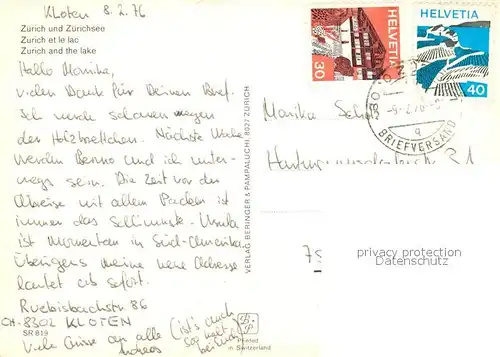 Kloten 8.2.76
Zürich und Zürichsee
Zürich et le lac
Zurich and the lake
Hallo Monika,
vielen Dank für Deinen Brief.
Ich werde schauen wegen
der Holzbrettchen. Nächste Woche
werden Benno und ich unter-
wegs sein. Die Zeit vor der
Abreise mit allem Packen ist
immer das Schlimmste. Ursula
ist momentan in Süd-Amerika.
Übrigens meine neue Adresse
lautet ab sofort:
Ruebisbachstr. 86
CH-8302 KLOTEN
SR 819
Viele Grüsse an alle
(ist's auch
so kalt
bei Euch
VERLAG BERINGER & PAMPALUCHI, 8027 ZÜRICH
Printed
in Switzerland
HELVETIA
30
HELVETIA
40
BRIEFVERSAND
Monika
21
75
privacy protection
Datenschutz